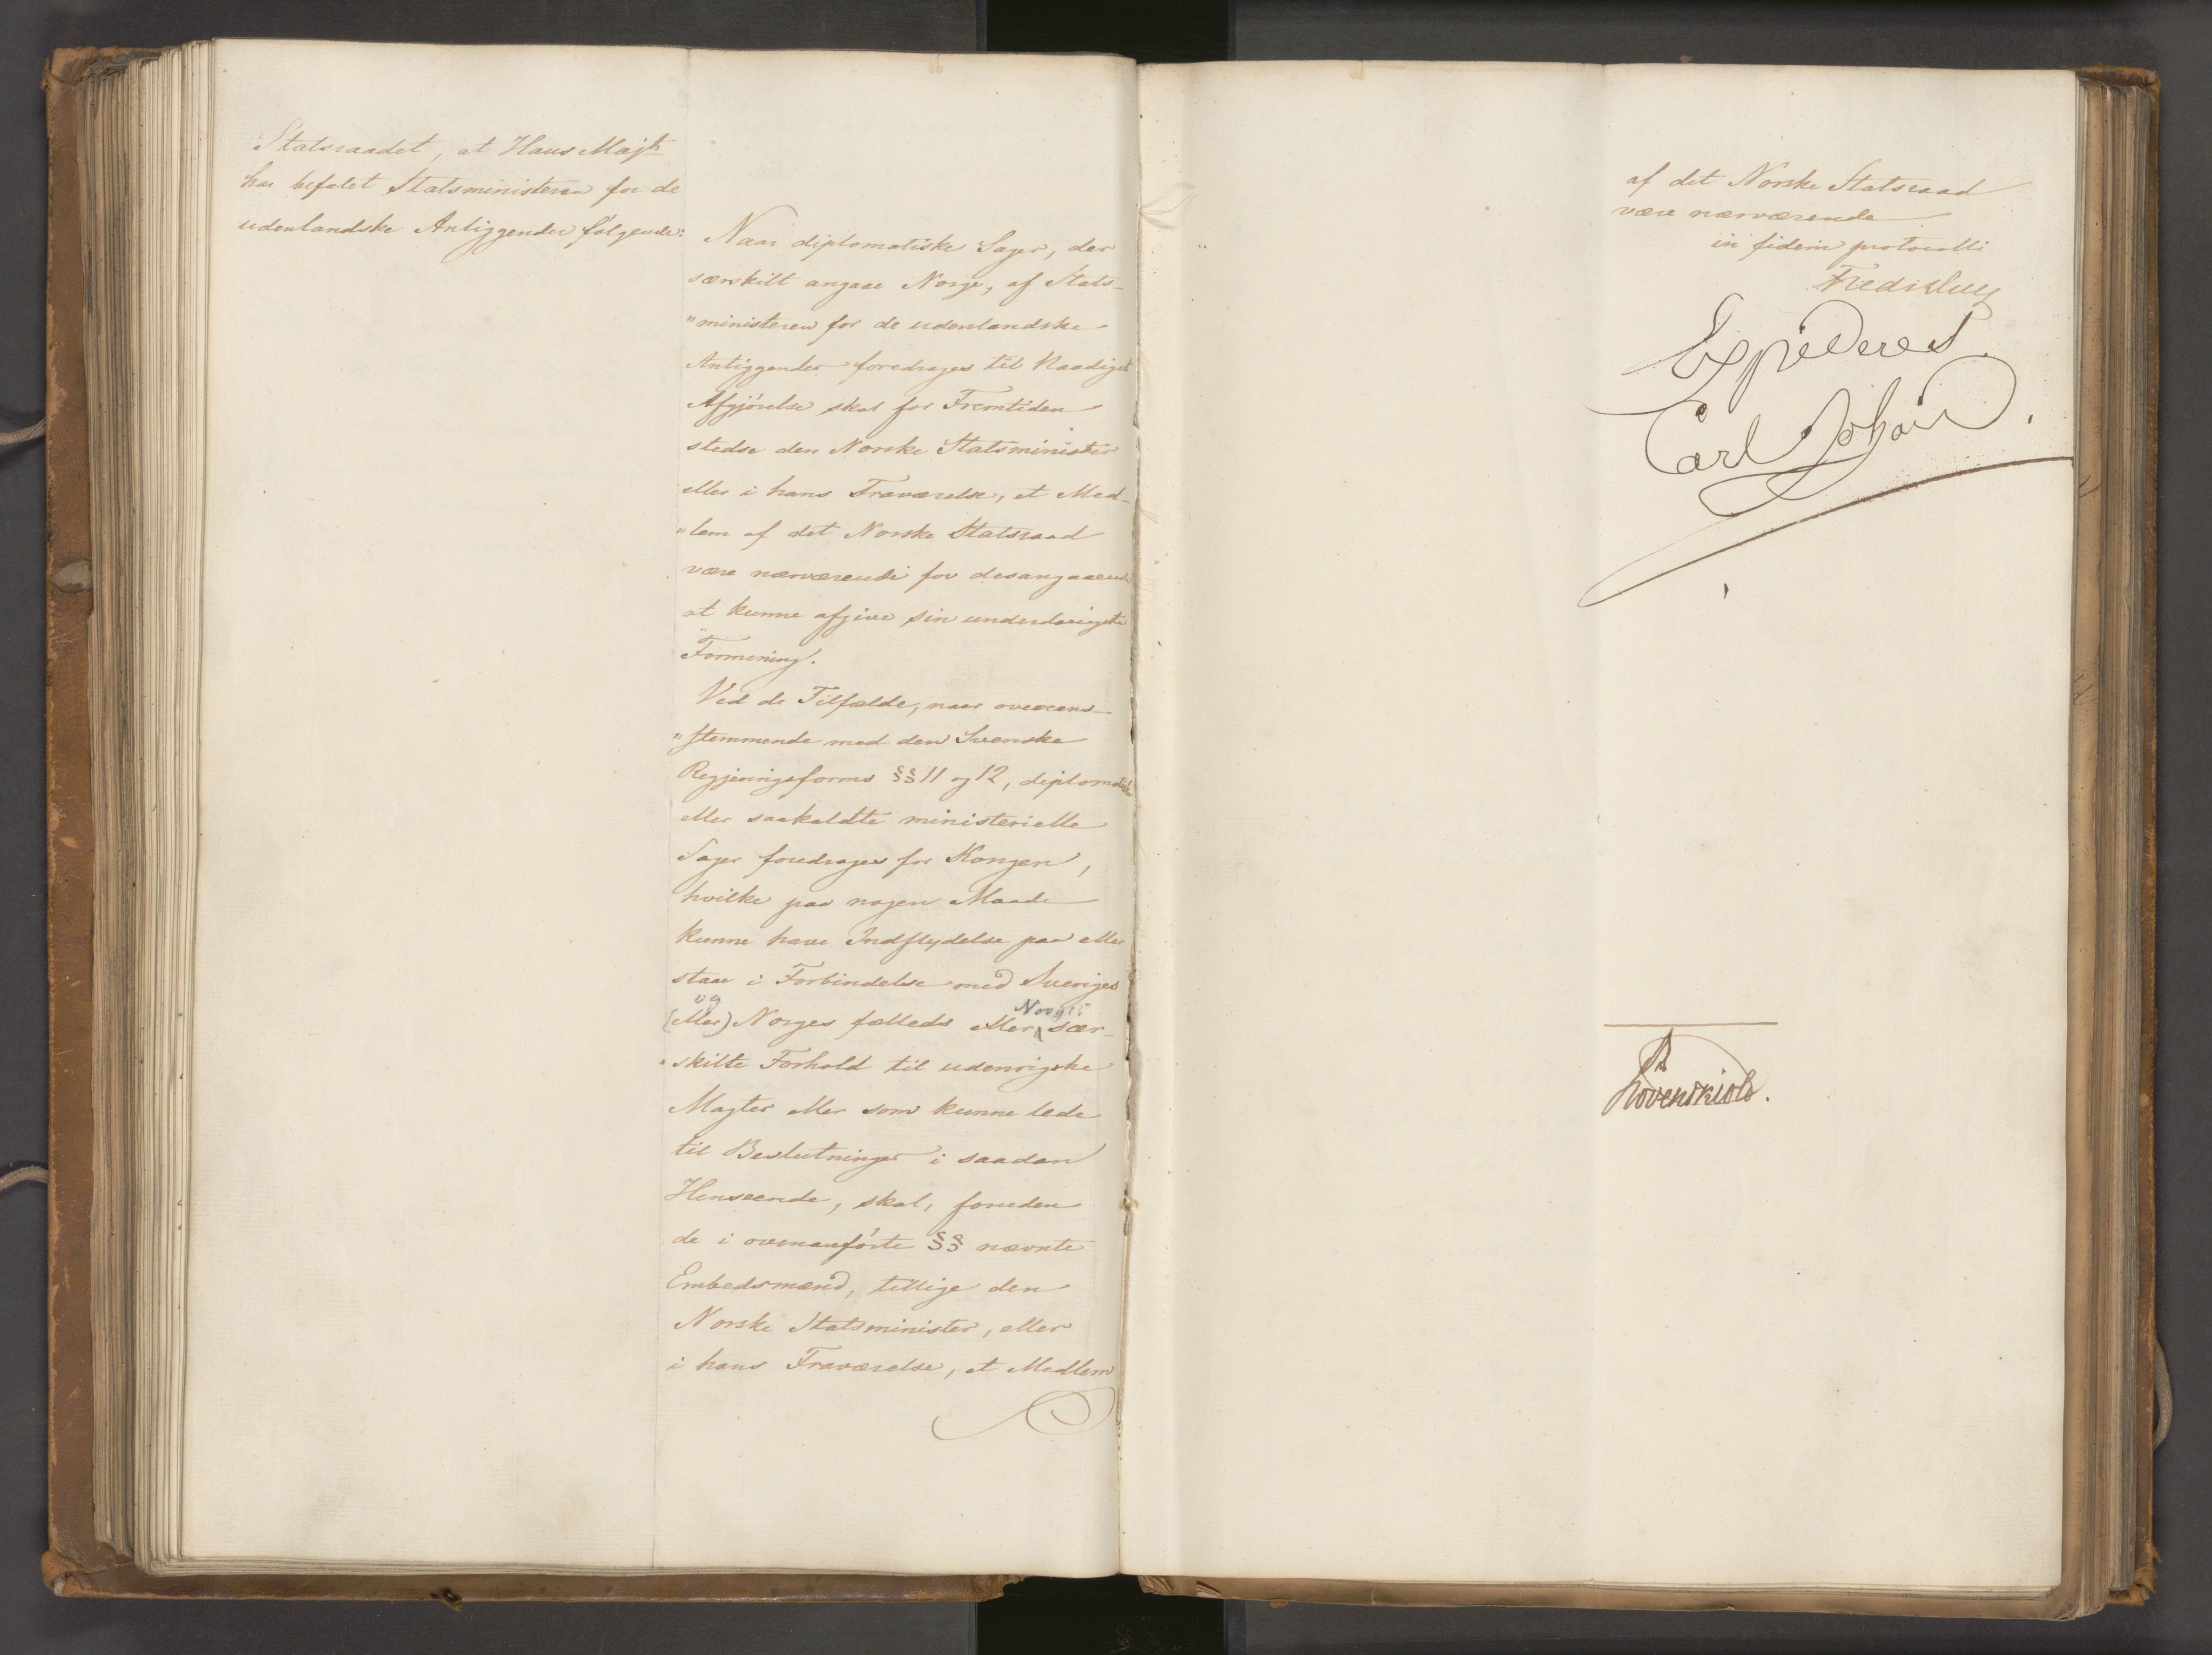 Statsraadet, at Hans Majt
har befalet Statsministeren for de
udenlandske Anliggender følgende:
Naar diplomatiske Sager, der
særskilt angaae Norge, af Stats-
"ministeren for de udenlandske
Anliggender foredrages til Naadigst
Afgjørelse skal for Fremtiden
stedse den Norske Statsminister
eller i hans Fraværelse, et Med-
"lem af det Norske Statsraad
være nærværende for desangaaende
at kunne afgive sin underdanigste
Formening.
Ved de Tilfælde, naar overeens-
"stemmende med den Svenske
Regjeringsforms §§ 11 og 12, diplomatiske
eller saakaldte ministerielle
Sager foredrages for Kongen,
hvilke paa nogen Maade
kunne have Indflydelse paa eller
staae i Forbindelse med Sveriges
og
Norges
(eller) Norges fælleds eller sær-
"skilte Forhold til udenrigske
Magter eller som kunne lede
til Beslutninger i saadan
Henseende, skal, foruden
de i ovenanførte §§ nævnte
Embedsmænd, tillige den
Norske Statsminister, eller
i hans Fraværelse, et Medlem
af det Norske Statsraad
være nærværende
in fidem protocolli
Expederes.
Carl Johan.
Løvenskiold.